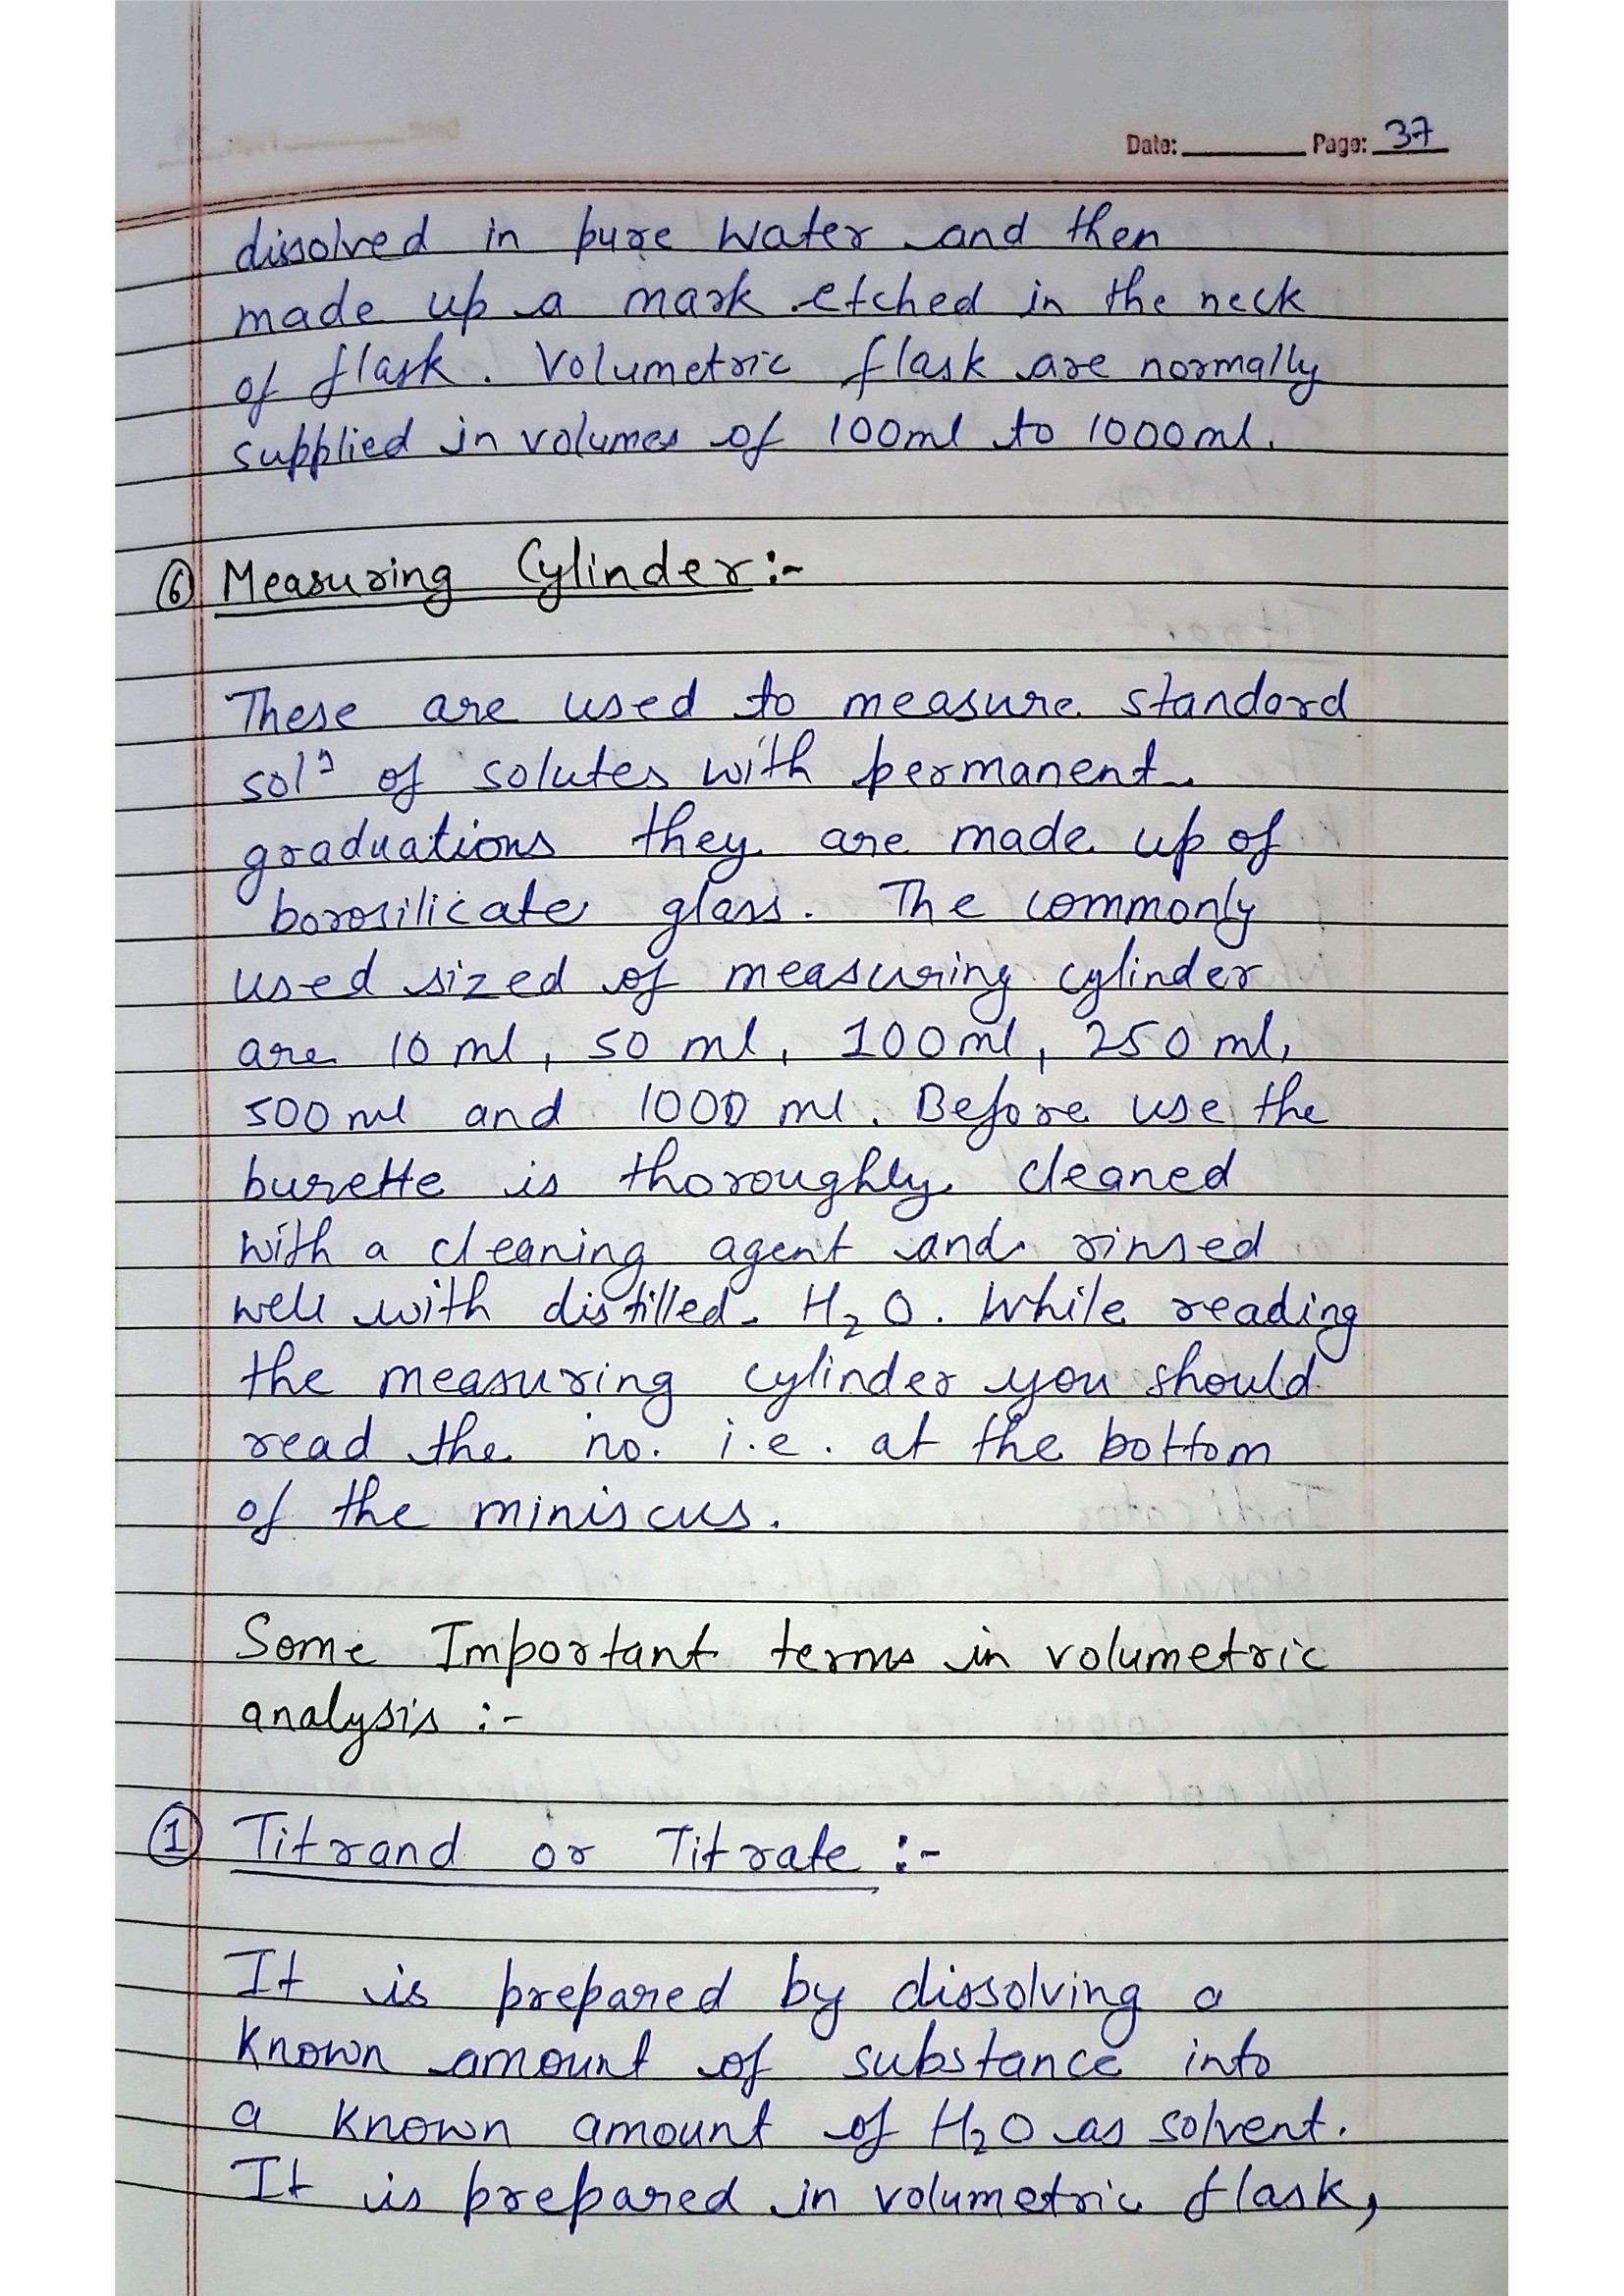 Date: Page: 37
dissolved in pure water and then
made up a mark etched in the neck
of flask. Volumetric flask are normally
supplied in volumes of 100ml to 1000ml.
⑥ Measuring Cylinder:-
These are used to measure standard
solⁿ of solutes with permanent
graduations they are made up of
borosilicate glass. The commonly
used sized of measuring cylinder
are 10 ml, 50 ml, 100 ml, 250 ml,
500 ml and 1000 ml. Before use the
burette is thoroughly cleaned
with a cleaning agent and rinsed
well with distilled H₂O. While reading
the measuring cylinder you should
read the no. i.e. at the bottom
of the miniscus.
Some Important terms in volumetric
analysis :-
① Titrand or Titrate :-
It is prepared by dissolving a
known amount of substance into
a known amount of H₂O as solvent.
It is prepared in volumetric flask,